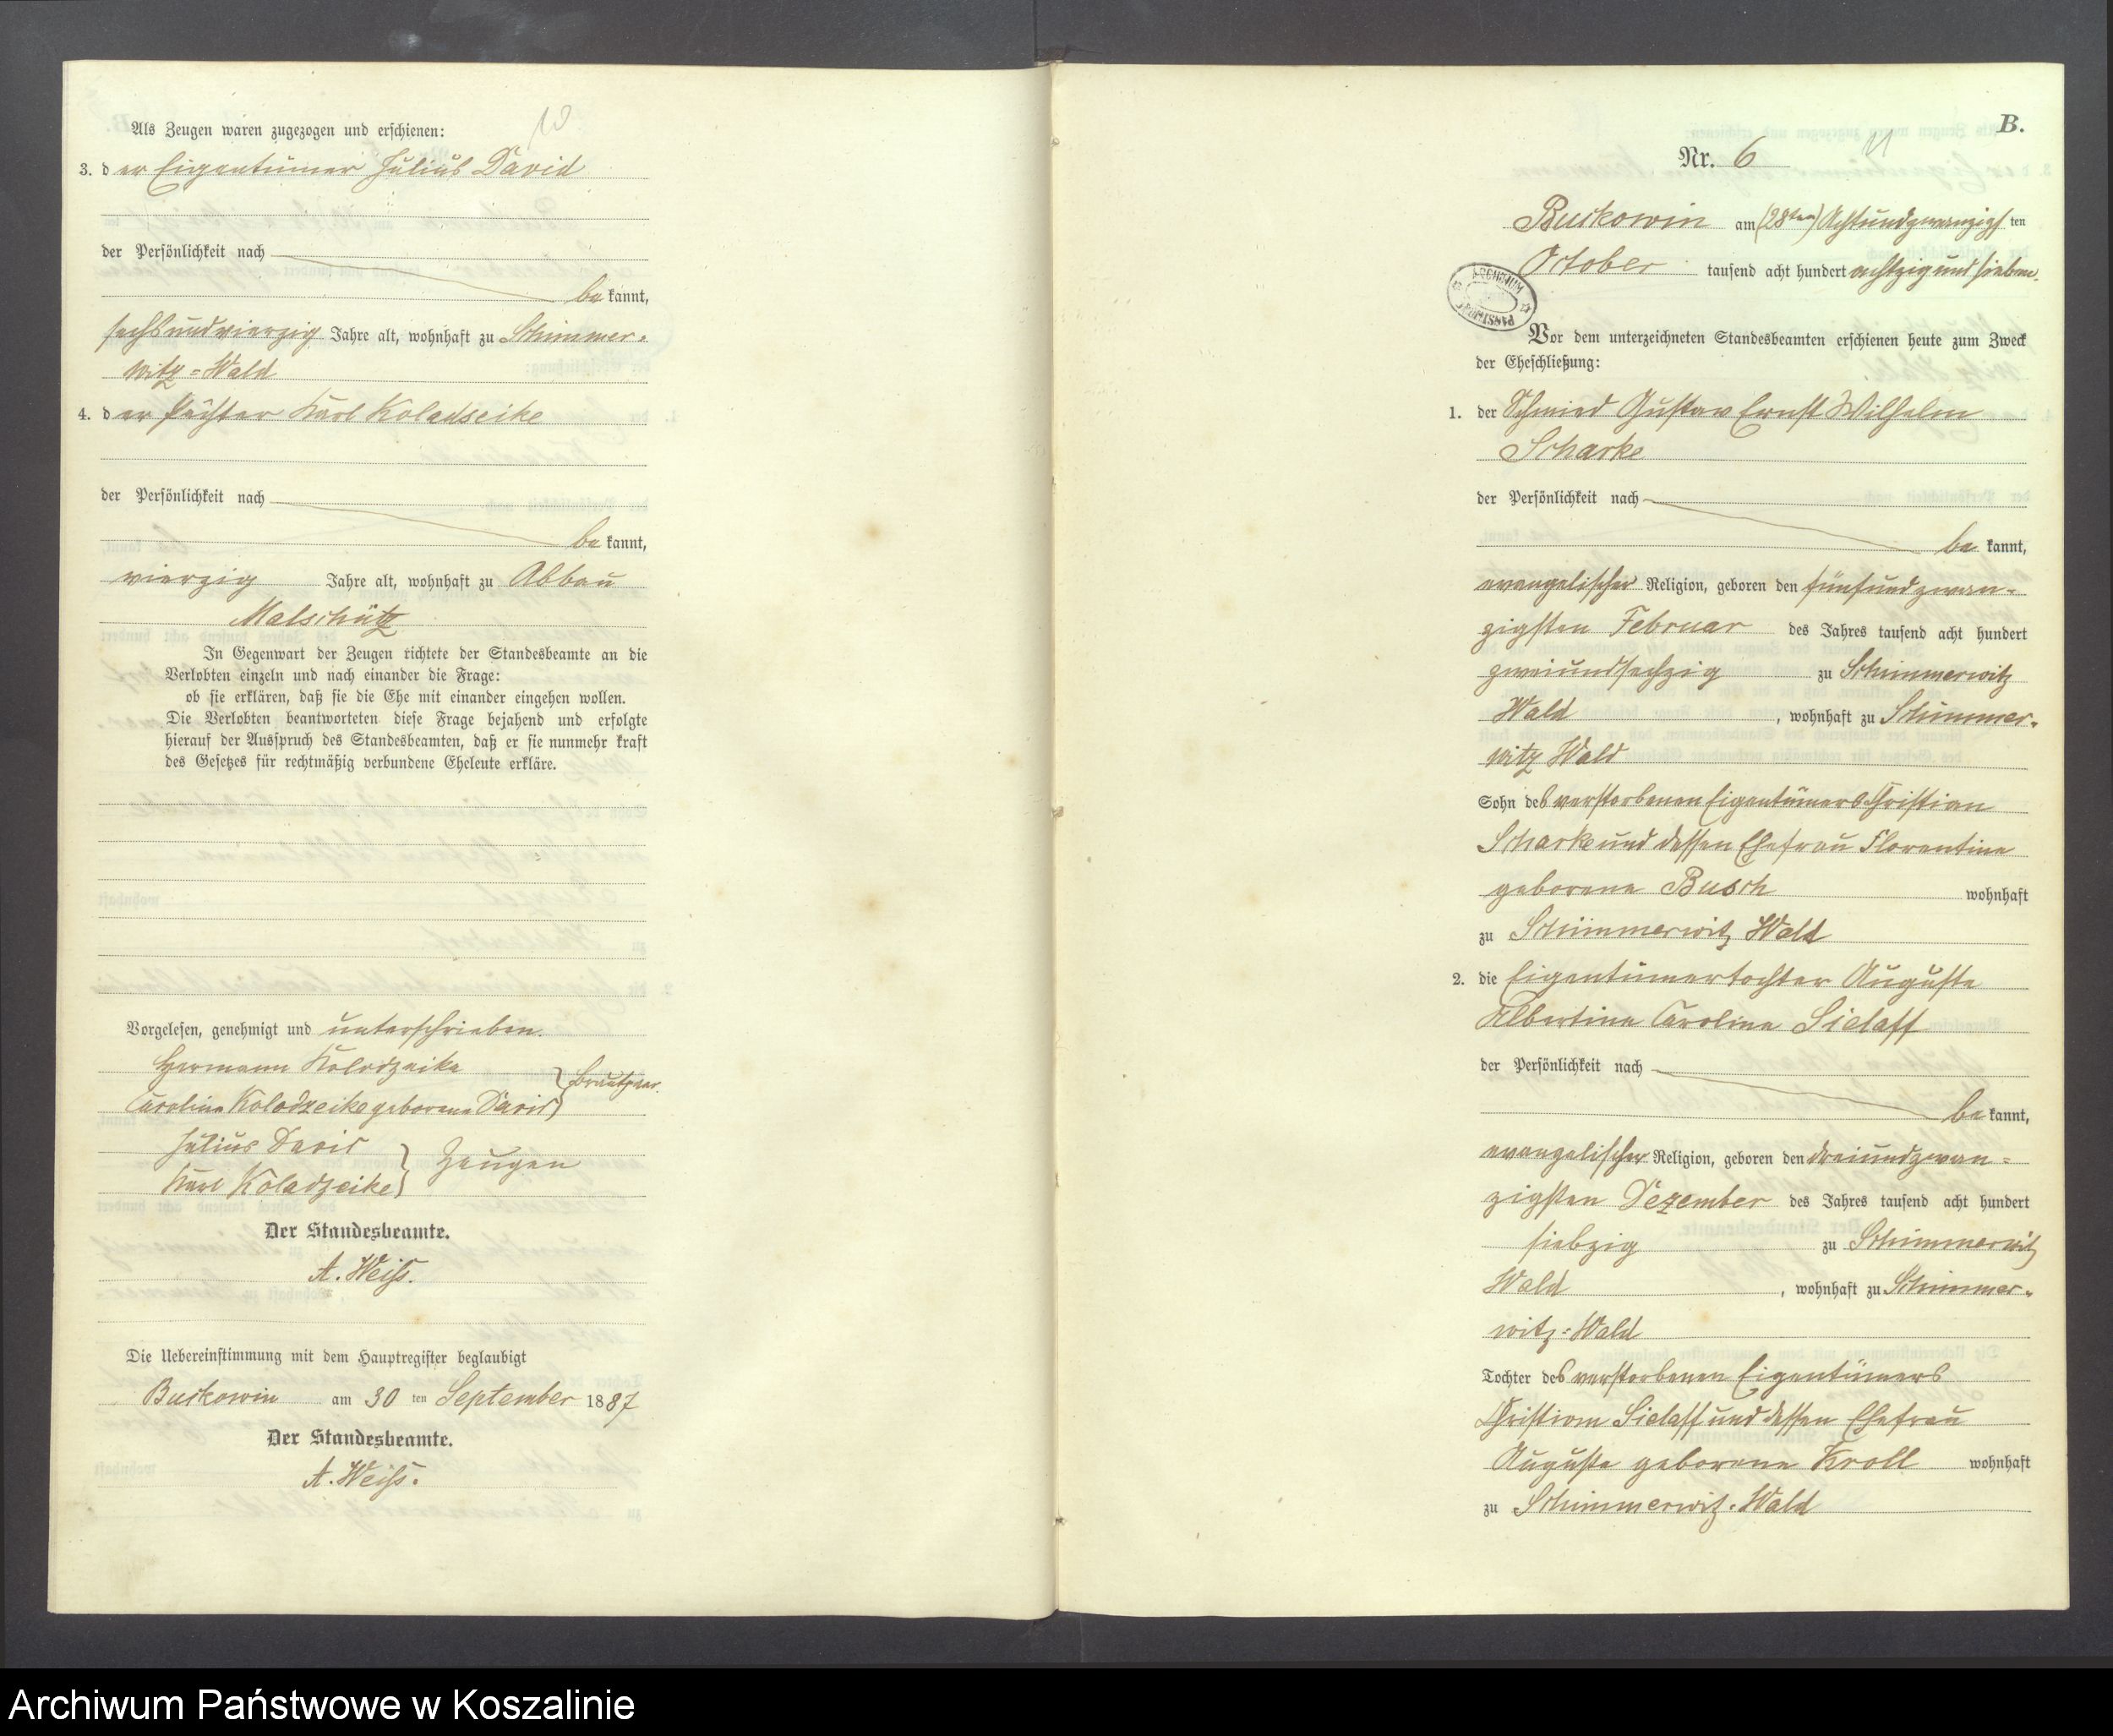 10
Als Zeugen waren zugezogen und erschienen:
3. der Eigentümer Julius David
der Persönlichkeit nach
bekannt,
sechsundvierzig Jahre alt, wohnhaft zu Schimmer-
witz-Wald
4. der Pächter Karl Koladseike
der Persönlichkeit nach
bekannt,
vierzig Jahre alt, wohnhaft zu Abbau
Malschütz
In Gegenwart der Zeugen richtete der Standesbeamte an die
Verlobten einzeln und nach einander die Frage:
ob sie erklären, daß sie die Ehe mit einander eingehen wollen.
Die Verlobten beantworteten diese Frage bejahend und erfolgte
hierauf der Ausspruch des Standesbeamten, daß er sie nunmehr kraft
des Gesetzes für rechtmäßig verbundene Eheleute erkläre.
Vorgelesen, genehmigt und unterschrieben.
Hermann Kolodzeike
Caroline Kolodzeike geborene David } Brautpaar.
Julius David
Karl Koladzeike } Zeugen
Der Standesbeamte.
A. Weiß.
Die Uebereinstimmung mit dem Hauptregister beglaubigt
Buckowin am 30 ten September 1887
Der Standesbeamte.
A. Weiß.
B.
11
Nr. 6
Buckowin am (28ten) Achtundzwanzigsten
October tausend acht hundert achtzig und sieben.
ARCHIWUM PAŃSTWOWE
Vor dem unterzeichneten Standesbeamten erschienen heute zum Zweck
der Eheschließung:
1. der Schmied Gustav Ernst Wilhelm
Scharke
der Persönlichkeit nach
bekannt,
evangelischer Religion, geboren den fünfundzwan-
zigsten Februar des Jahres tausend acht hundert
zweiundsechzig zu Schimmerwitz
Wald, wohnhaft zu Schimmer-
witz Wald
Sohn des verstorbenen Eigentümers Christian
Scharke und dessen Ehefrau Florentine
geborene Busch wohnhaft
zu Schimmerwitz Wald
2. die Eigentümertochter Auguste
Albertine Caroline Sielaff
der Persönlichkeit nach
bekannt,
evangelischer Religion, geboren den dreiundzwan-
zigsten Dezember des Jahres tausend acht hundert
siebzig zu Schimmerwitz
Wald, wohnhaft zu Schimmer-
witz-Wald
Tochter des verstorbenen Eigentümers
Christian Sielaff und dessen Ehefrau
Auguste geborene Kroll wohnhaft
zu Schimmerwitz-Wald
Archiwum Państwowe w Koszalinie